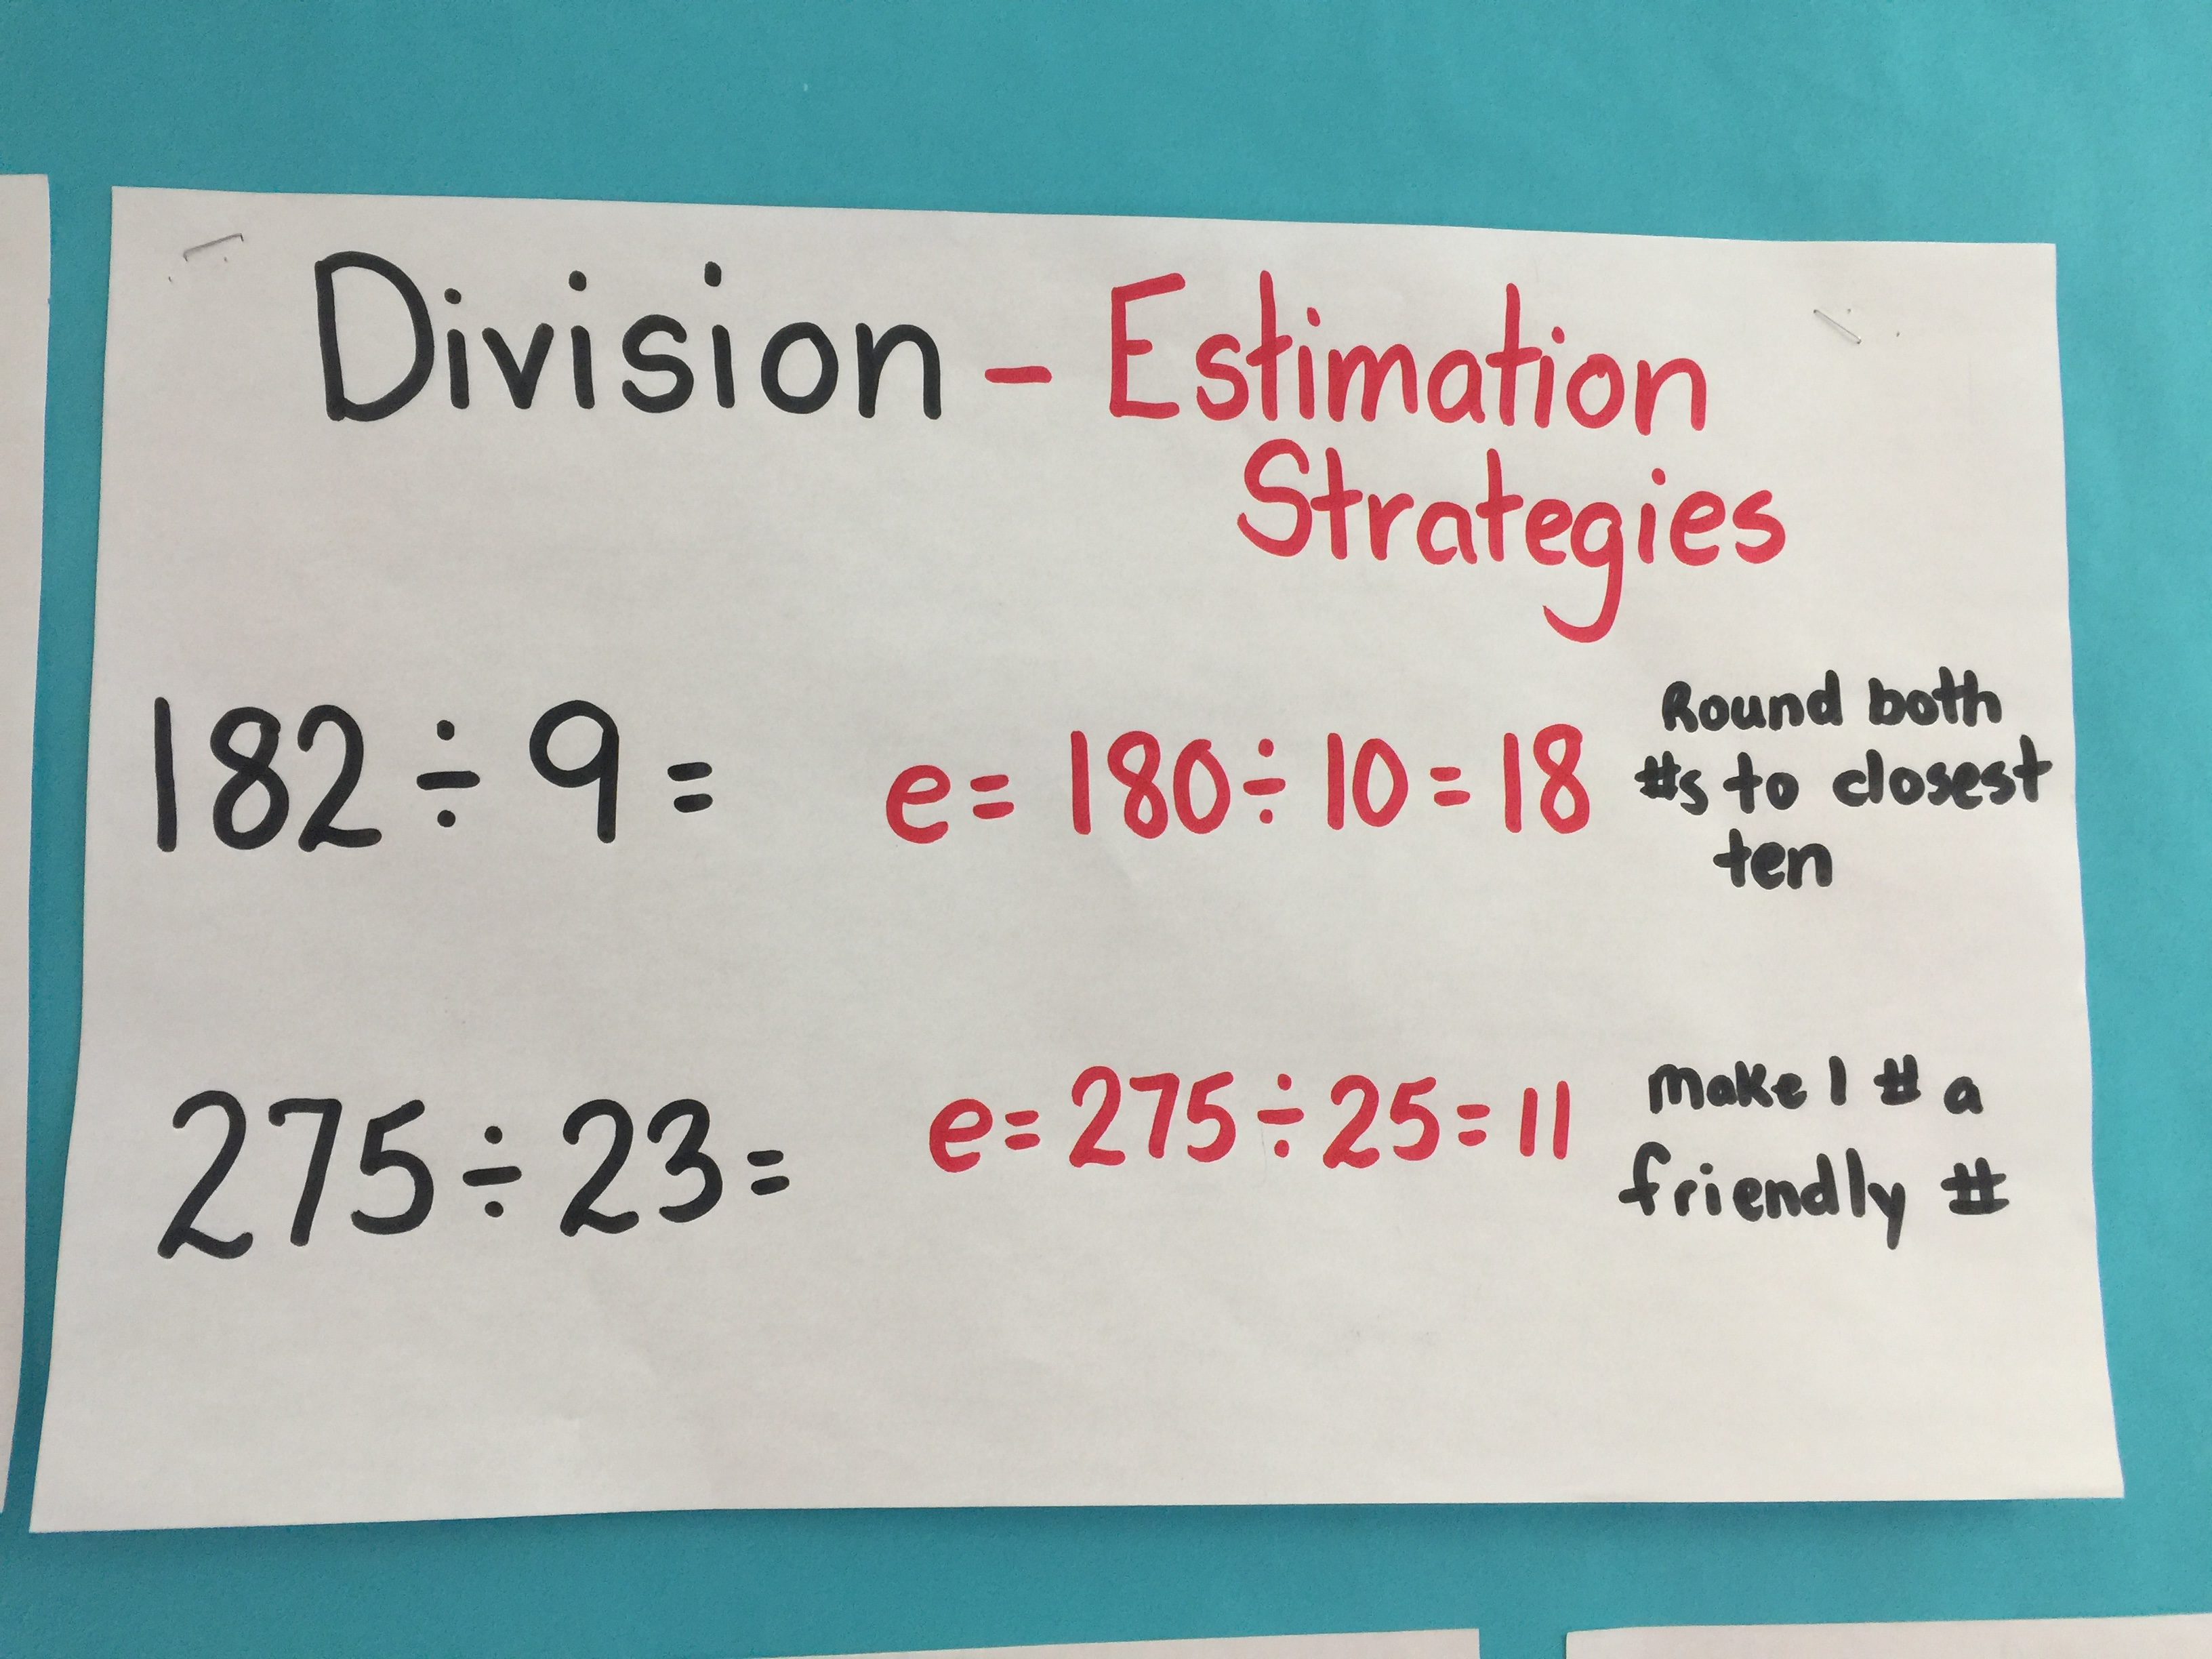 Division - Estimation
Strategies
182 ÷ 9 = e = 180 ÷ 10 = 18
Round both
#s to closest
ten
275 ÷ 23 = e = 275 ÷ 25 = 11
Make 1 # a
friendly #